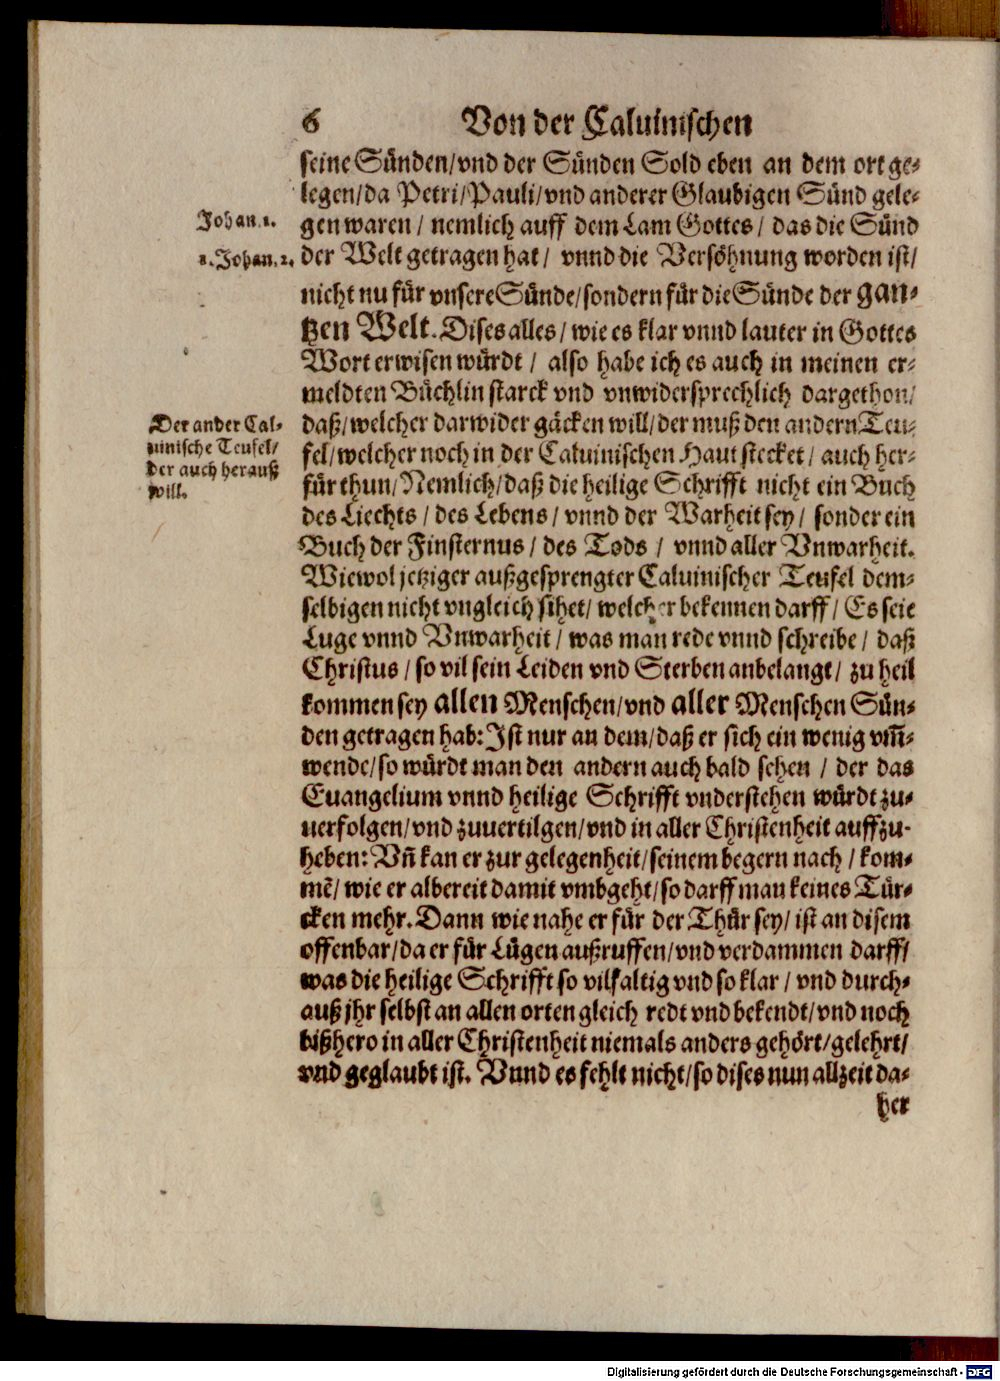 6 Von der Caluinischen
seine Sünden/vnd der Sünden Sold eben an dem ort ge-
legen/da Petri/Pauli/vnd anderer Glaubigen Sünd gele-
Johan.1.
gen waren / nemlich auff dem Lam Gottes / das die Sünd
1.Johan.2.
der Welt getragen hat/ vnnd die Versöhnung worden ist/
nicht nu für vnsere Sünde/sondern für die Sünde der gan-
tzen Welt. Dises alles/ wie es klar vnnd lauter in Gottes
Wort erwisen würdt / also habe ich es auch in meinen er-
meldten Büchlin starck vnd vnwidersprechlich dargethon/
Der ander Cal-
uinische Teufel/
der auch herauß
will.
daß/welcher darwider gäcken will/der muß den andern Teu-
fel/welcher noch in der Caluinischen Haut stecket/ auch her-
für thun/Nemlich/daß die heilige Schrifft nicht ein Buch
des Liechts / des Lebens/ vnnd der Warheit sey/ sonder ein
Buch der Finsternus / des Tods / vnnd aller Vnwarheit.
Wiewol jetziger außgesprengter Caluinischer Teufel dem-
selbigen nicht vngleich sihet/ welcher bekennen darff/ Es seie
Luge vnnd Vnwarheit/ was man rede vnnd schreibe/ daß
Christus / so vil sein Leiden vnd Sterben anbelangt/ zu heil
kommen sey allen Menschen/vnd aller Menschen Sün-
den getragen hab: Ist nur an dem/daß er sich ein wenig vm̃-
wende/so würdt man den andern auch bald sehen / der das
Euangelium vnnd heilige Schrifft vnderstehen würdt zu-
uerfolgen/vnd zuuertilgen/vnd in aller Christenheit auffzu-
heben: Vñ kan er zur gelegenheit/seinem begern nach / kom-
mẽ/ wie er albereit damit vmbgeht/so darff man keines Tür-
cken mehr. Dann wie nahe er für der Thür sey/ ist an disem
offenbar/da er für Lügen außruffen/vnd verdammen darff/
was die heilige Schrifft so vilfaltig vnd so klar / vnd durch-
auß jhr selbst an allen orten gleich redt vnd bekendt/vnd noch
bißhero in aller Christenheit niemals anders gehört/gelehrt/
vnd geglaubt ist. Vnnd es fehlt nicht/so dises nun allzeit da-
her
Digitalisierung gefördert durch die Deutsche Forschungsgemeinschaft - DFG